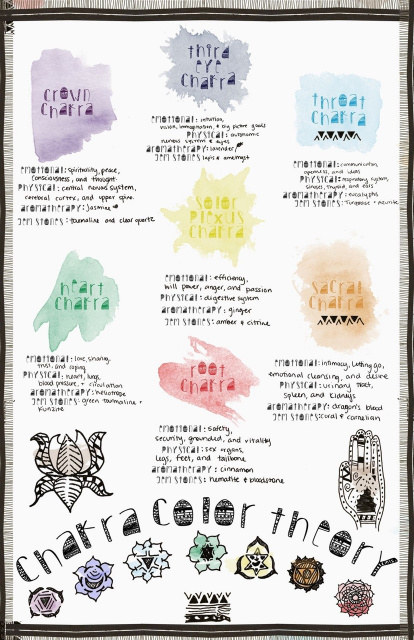 third
eye
chakra
emotional: intuition,
vision, imagination, & big picture goals
physical: autonomic
nervous system & eyes
aromatherapy: lavender
gem stones: lapis & amethyst
crown
chakra
emotional: spirituality, peace,
consciousness, and thought
physical: central nervous system,
cerebral cortex, and upper spine
aromatherapy: jasmine
gem stones: tourmaline and clear quartz
throat
chakra
emotional: communication,
openness, and ideas
physical: respiratory system,
sinuses, thyroid, and ears
aromatherapy: eucalyptus
gem stones: turquoise +
solar
plexus
chakra
emotional: efficiency,
will power, anger, and passion
physical: digestive system
aromatherapy: ginger
gem stones: amber & citrine
heart
chakra
emotional: love, sharing,
trust, and coping
physical: heart, lungs,
blood pressure, + circulation
aromatherapy: heliotrope
gem stones: green tourmaline +
kunzite
sacral
chakra
emotional: intimacy, letting go,
emotional cleansing, and desire
physical: urinary tract,
spleen, and kidneys
aromatherapy: dragon's blood
gem stones: coral & carnelian
root
chakra
emotional: safety,
security, grounded, and vitality
physical: sex organs,
legs, feet, and tailbone
aromatherapy: cinnamon
gem stones: hematite & bloodstone
chakra color theory